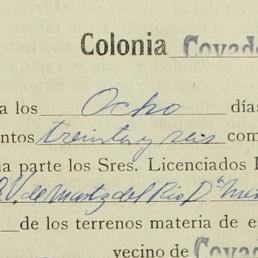 Colonia Covad
a los Ocho días
ntos treinta y seis com
na parte los Sres. Licenciados
V. de Martz del Rio, Dª
de los terrenos materia de e
vecino de Covad